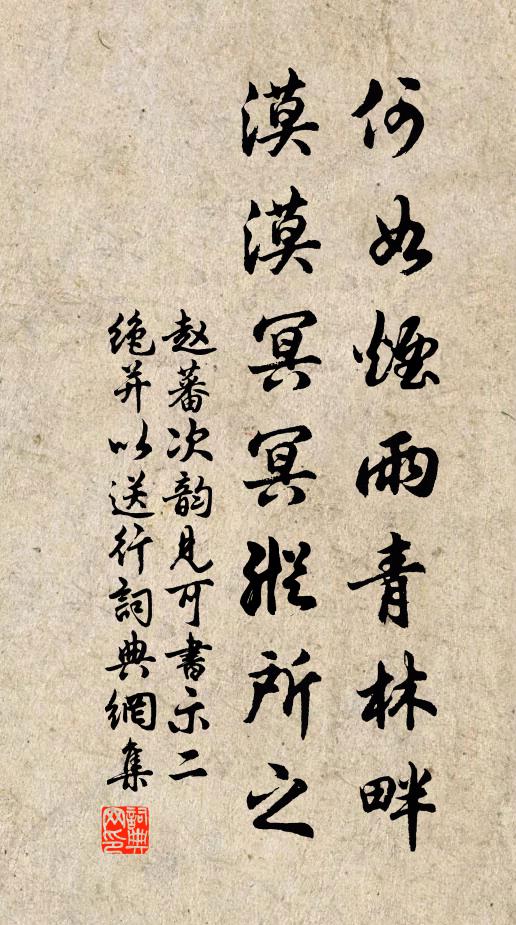 何如煙雨青林畔
漠漠冥冥縱所之
赵蕃次韵見可書示二
绝并以送行詞典網集
詞典网印